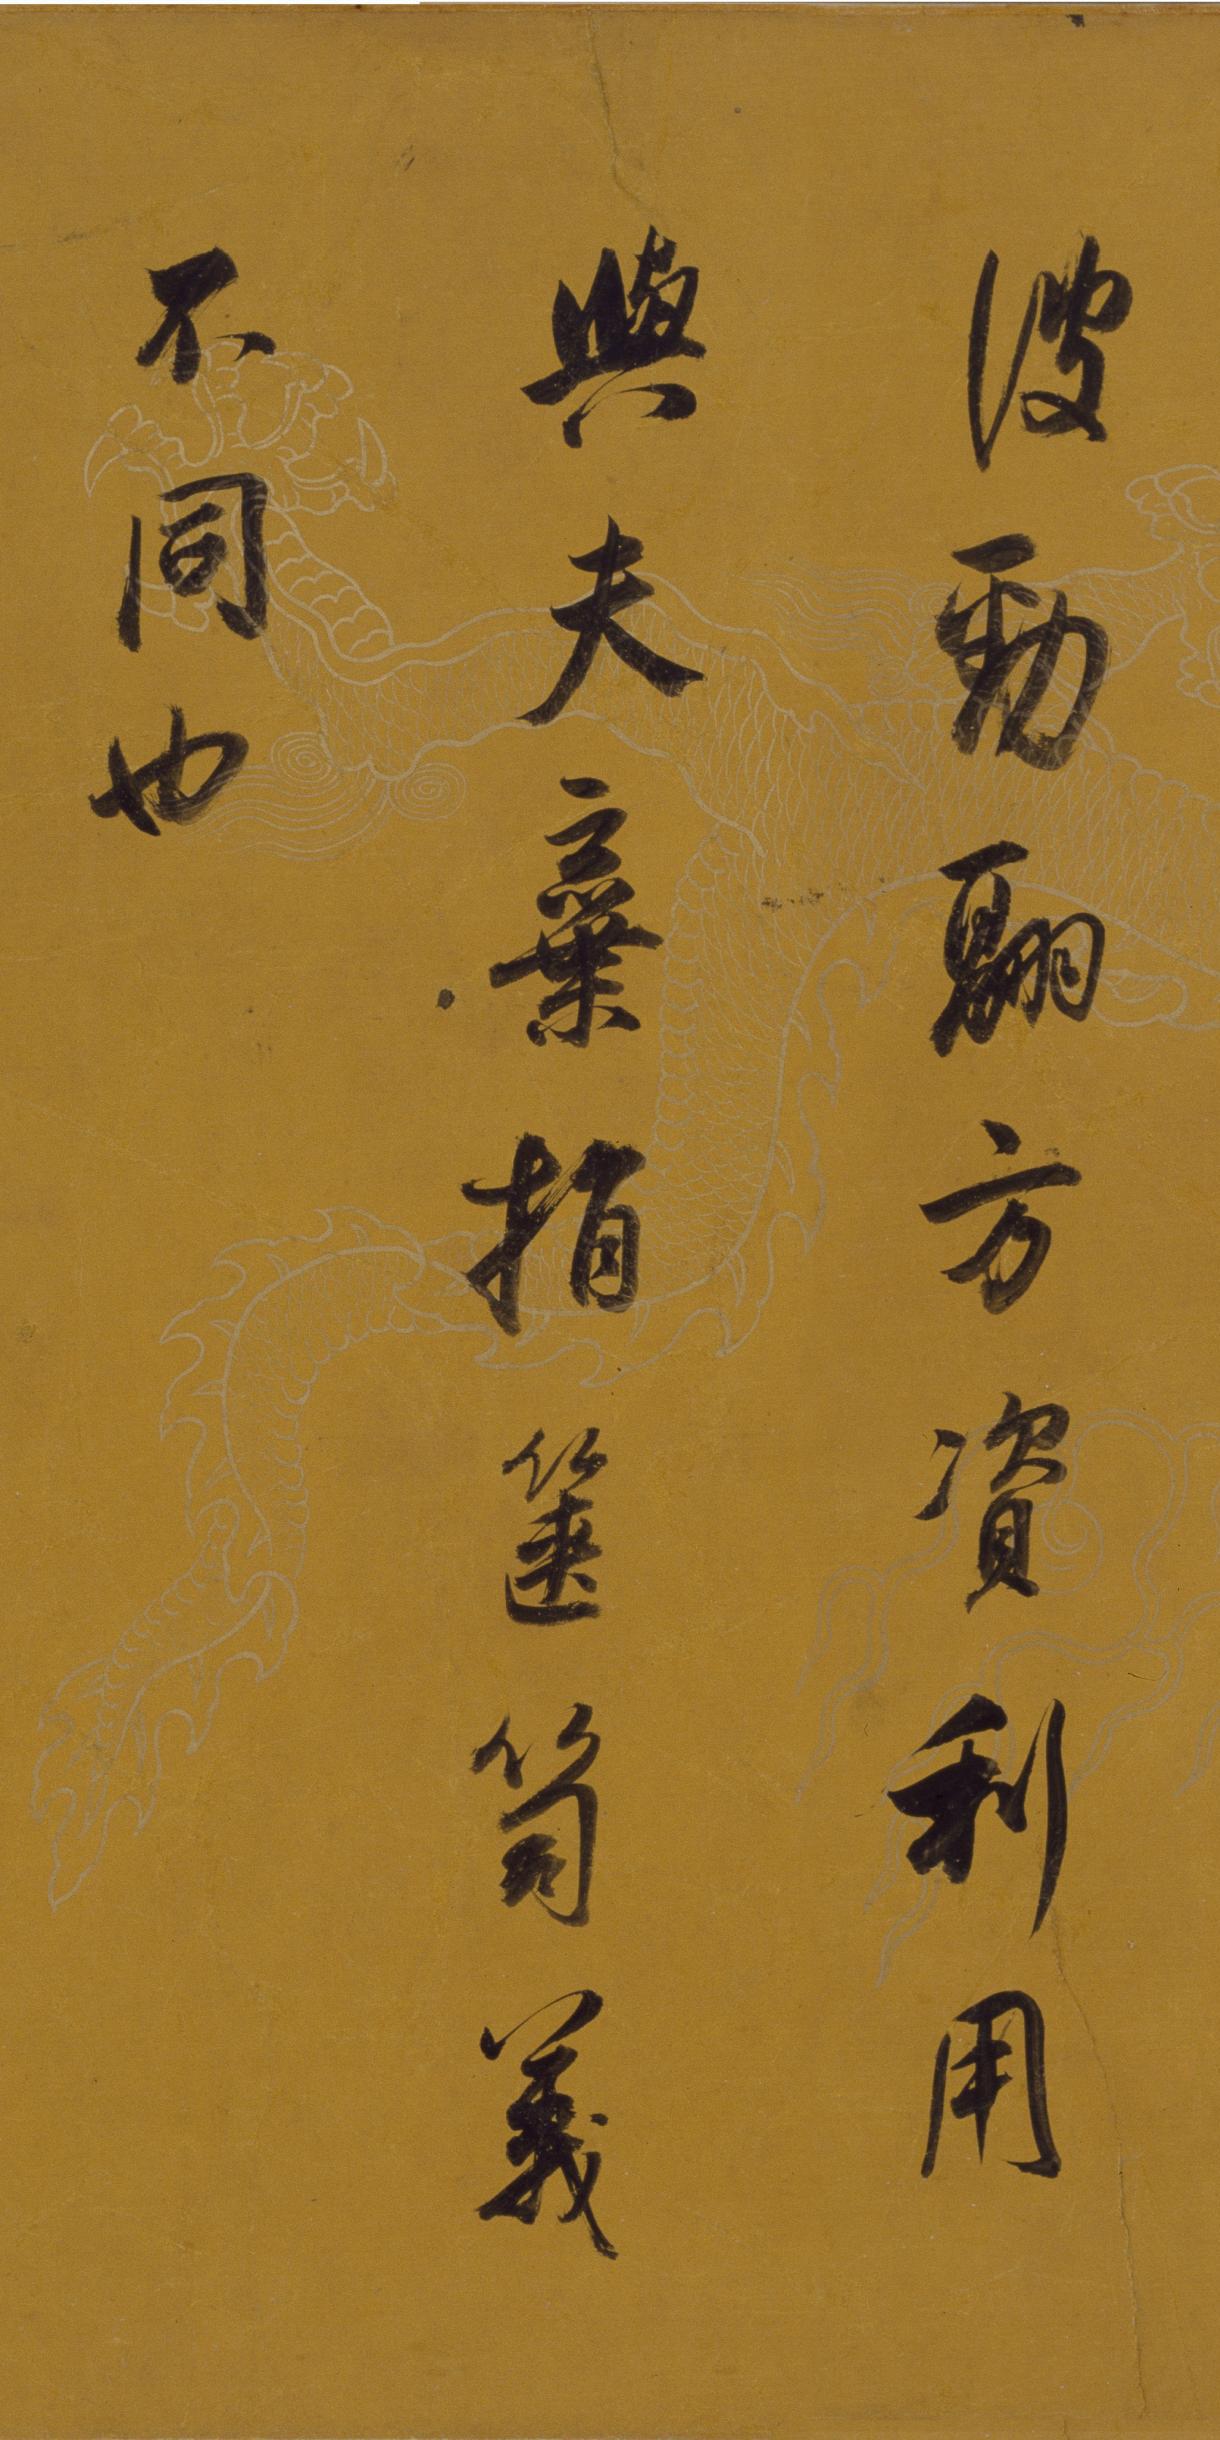 彼勁翮方資利用
與夫棄捐篋笥義
不同也